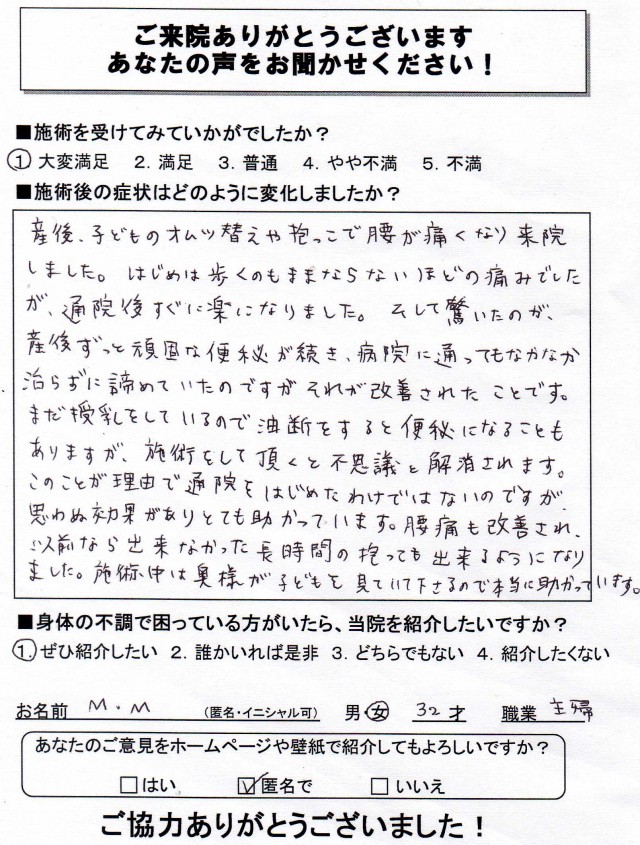 ご来院ありがとうございます
あなたの声をお聞かせください！
■施術を受けてみていかがでしたか？
① 大変満足　2. 満足　3. 普通　4. やや不満　5. 不満
■施術後の症状はどのように変化しましたか？
産後、子どものオムツ替えや抱っこで腰が痛くなり来院
しました。はじめは歩くのもままならないほどの痛みでした
が、通院後すぐに楽になりました。そして驚いたのが、
産後ずっと頑固な便秘が続き、病院に通ってもなかなか
治らずに諦めていたのですがそれが改善されたことです。
まだ授乳をしているので油断をすると便秘になることも
ありますが、施術をして頂くと不思議と解消されます。
このことが理由で通院をはじめたわけではないのですが
思わぬ効果がありとても助かっています。腰痛も改善され、
以前なら出来なかった長時間の抱っても出来るようになり
ました。施術中は奥様が子どもを見ていて下さるので本当に助かっています。
■身体の不調で困っている方がいたら、当院を紹介したいですか？
①. ぜひ紹介したい　2. 誰かいれば是非　3. どちらでもない　4. 紹介したくない
お名前　M.M　（匿名・イニシャル可）　男・女　32才　職業　主婦
あなたのご意見をホームページや壁紙で紹介してもよろしいですか？
□はい　☑匿名で　□いいえ
ご協力ありがとうございました！